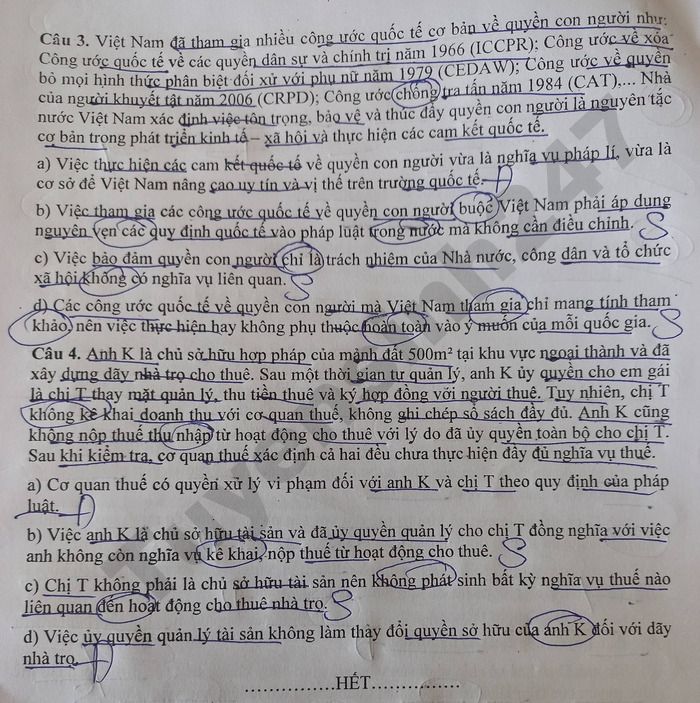 Câu 3. Việt Nam đã tham gia nhiều công ước quốc tế cơ bản về quyền con người như:
Công ước quốc tế về các quyền dân sự và chính trị năm 1966 (ICCPR); Công ước về xóa
bỏ mọi hình thức phân biệt đối xử với phụ nữ năm 1979 (CEDAW); Công ước về quyền
của người khuyết tật năm 2006 (CRPD); Công ước chống tra tấn năm 1984 (CAT),... Nhà
nước Việt Nam xác định việc tôn trọng, bảo vệ và thúc đẩy quyền con người là nguyên tắc
cơ bản trong phát triển kinh tế – xã hội và thực hiện các cam kết quốc tế.
a) Việc thực hiện các cam kết quốc tế về quyền con người vừa là nghĩa vụ pháp lí, vừa là
cơ sở để Việt Nam nâng cao uy tín và vị thế trên trường quốc tế. Đ
b) Việc tham gia các công ước quốc tế về quyền con người buộc Việt Nam phải áp dụng
nguyên vẹn các quy định quốc tế vào pháp luật trong nước mà không cần điều chỉnh. S
c) Việc bảo đảm quyền con người chỉ là trách nhiệm của Nhà nước, công dân và tổ chức
xã hội không có nghĩa vụ liên quan. S
d) Các công ước quốc tế về quyền con người mà Việt Nam tham gia chỉ mang tính tham
khảo, nên việc thực hiện hay không phụ thuộc hoàn toàn vào ý muốn của mỗi quốc gia. S
Câu 4. Anh K là chủ sở hữu hợp pháp của mảnh đất 500m² tại khu vực ngoại thành và đã
xây dựng dãy nhà trọ cho thuê. Sau một thời gian tự quản lý, anh K ủy quyền cho em gái
là chị T thay mặt quản lý, thu tiền thuê và ký hợp đồng với người thuê. Tuy nhiên, chị T
không kê khai doanh thu với cơ quan thuế, không ghi chép sổ sách đầy đủ. Anh K cũng
không nộp thuế thu nhập từ hoạt động cho thuê với lý do đã ủy quyền toàn bộ cho chị T.
Sau khi kiểm tra, cơ quan thuế xác định cả hai đều chưa thực hiện đầy đủ nghĩa vụ thuế.
a) Cơ quan thuế có quyền xử lý vi phạm đối với anh K và chị T theo quy định của pháp
luật. Đ
b) Việc anh K là chủ sở hữu tài sản và đã ủy quyền quản lý cho chị T đồng nghĩa với việc
anh không còn nghĩa vụ kê khai, nộp thuế từ hoạt động cho thuê. S
c) Chị T không phải là chủ sở hữu tài sản nên không phát sinh bất kỳ nghĩa vụ thuế nào
liên quan đến hoạt động cho thuê nhà trọ. S
d) Việc ủy quyền quản lý tài sản không làm thay đổi quyền sở hữu của anh K đối với dãy
nhà trọ. Đ
................HẾT................
tuyensinh247